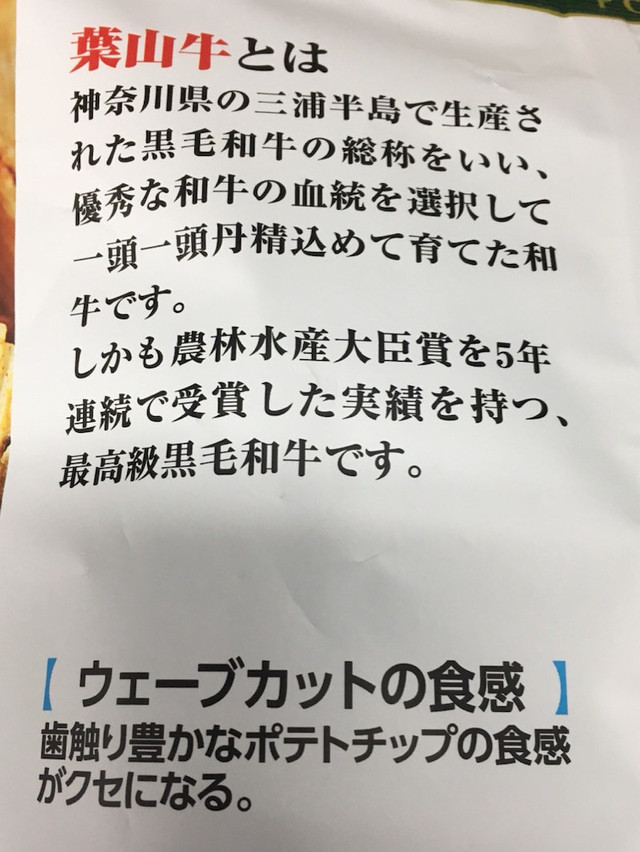 葉山牛とは
神奈川県の三浦半島で生産さ
れた黒毛和牛の総称をいい、
優秀な和牛の血統を選択して
一頭一頭丹精込めて育てた和
牛です。
しかも農林水産大臣賞を5年
連続で受賞した実績を持つ、
最高級黒毛和牛です。
【ウェーブカットの食感】
歯触り豊かなポテトチップの食感
がクセになる。